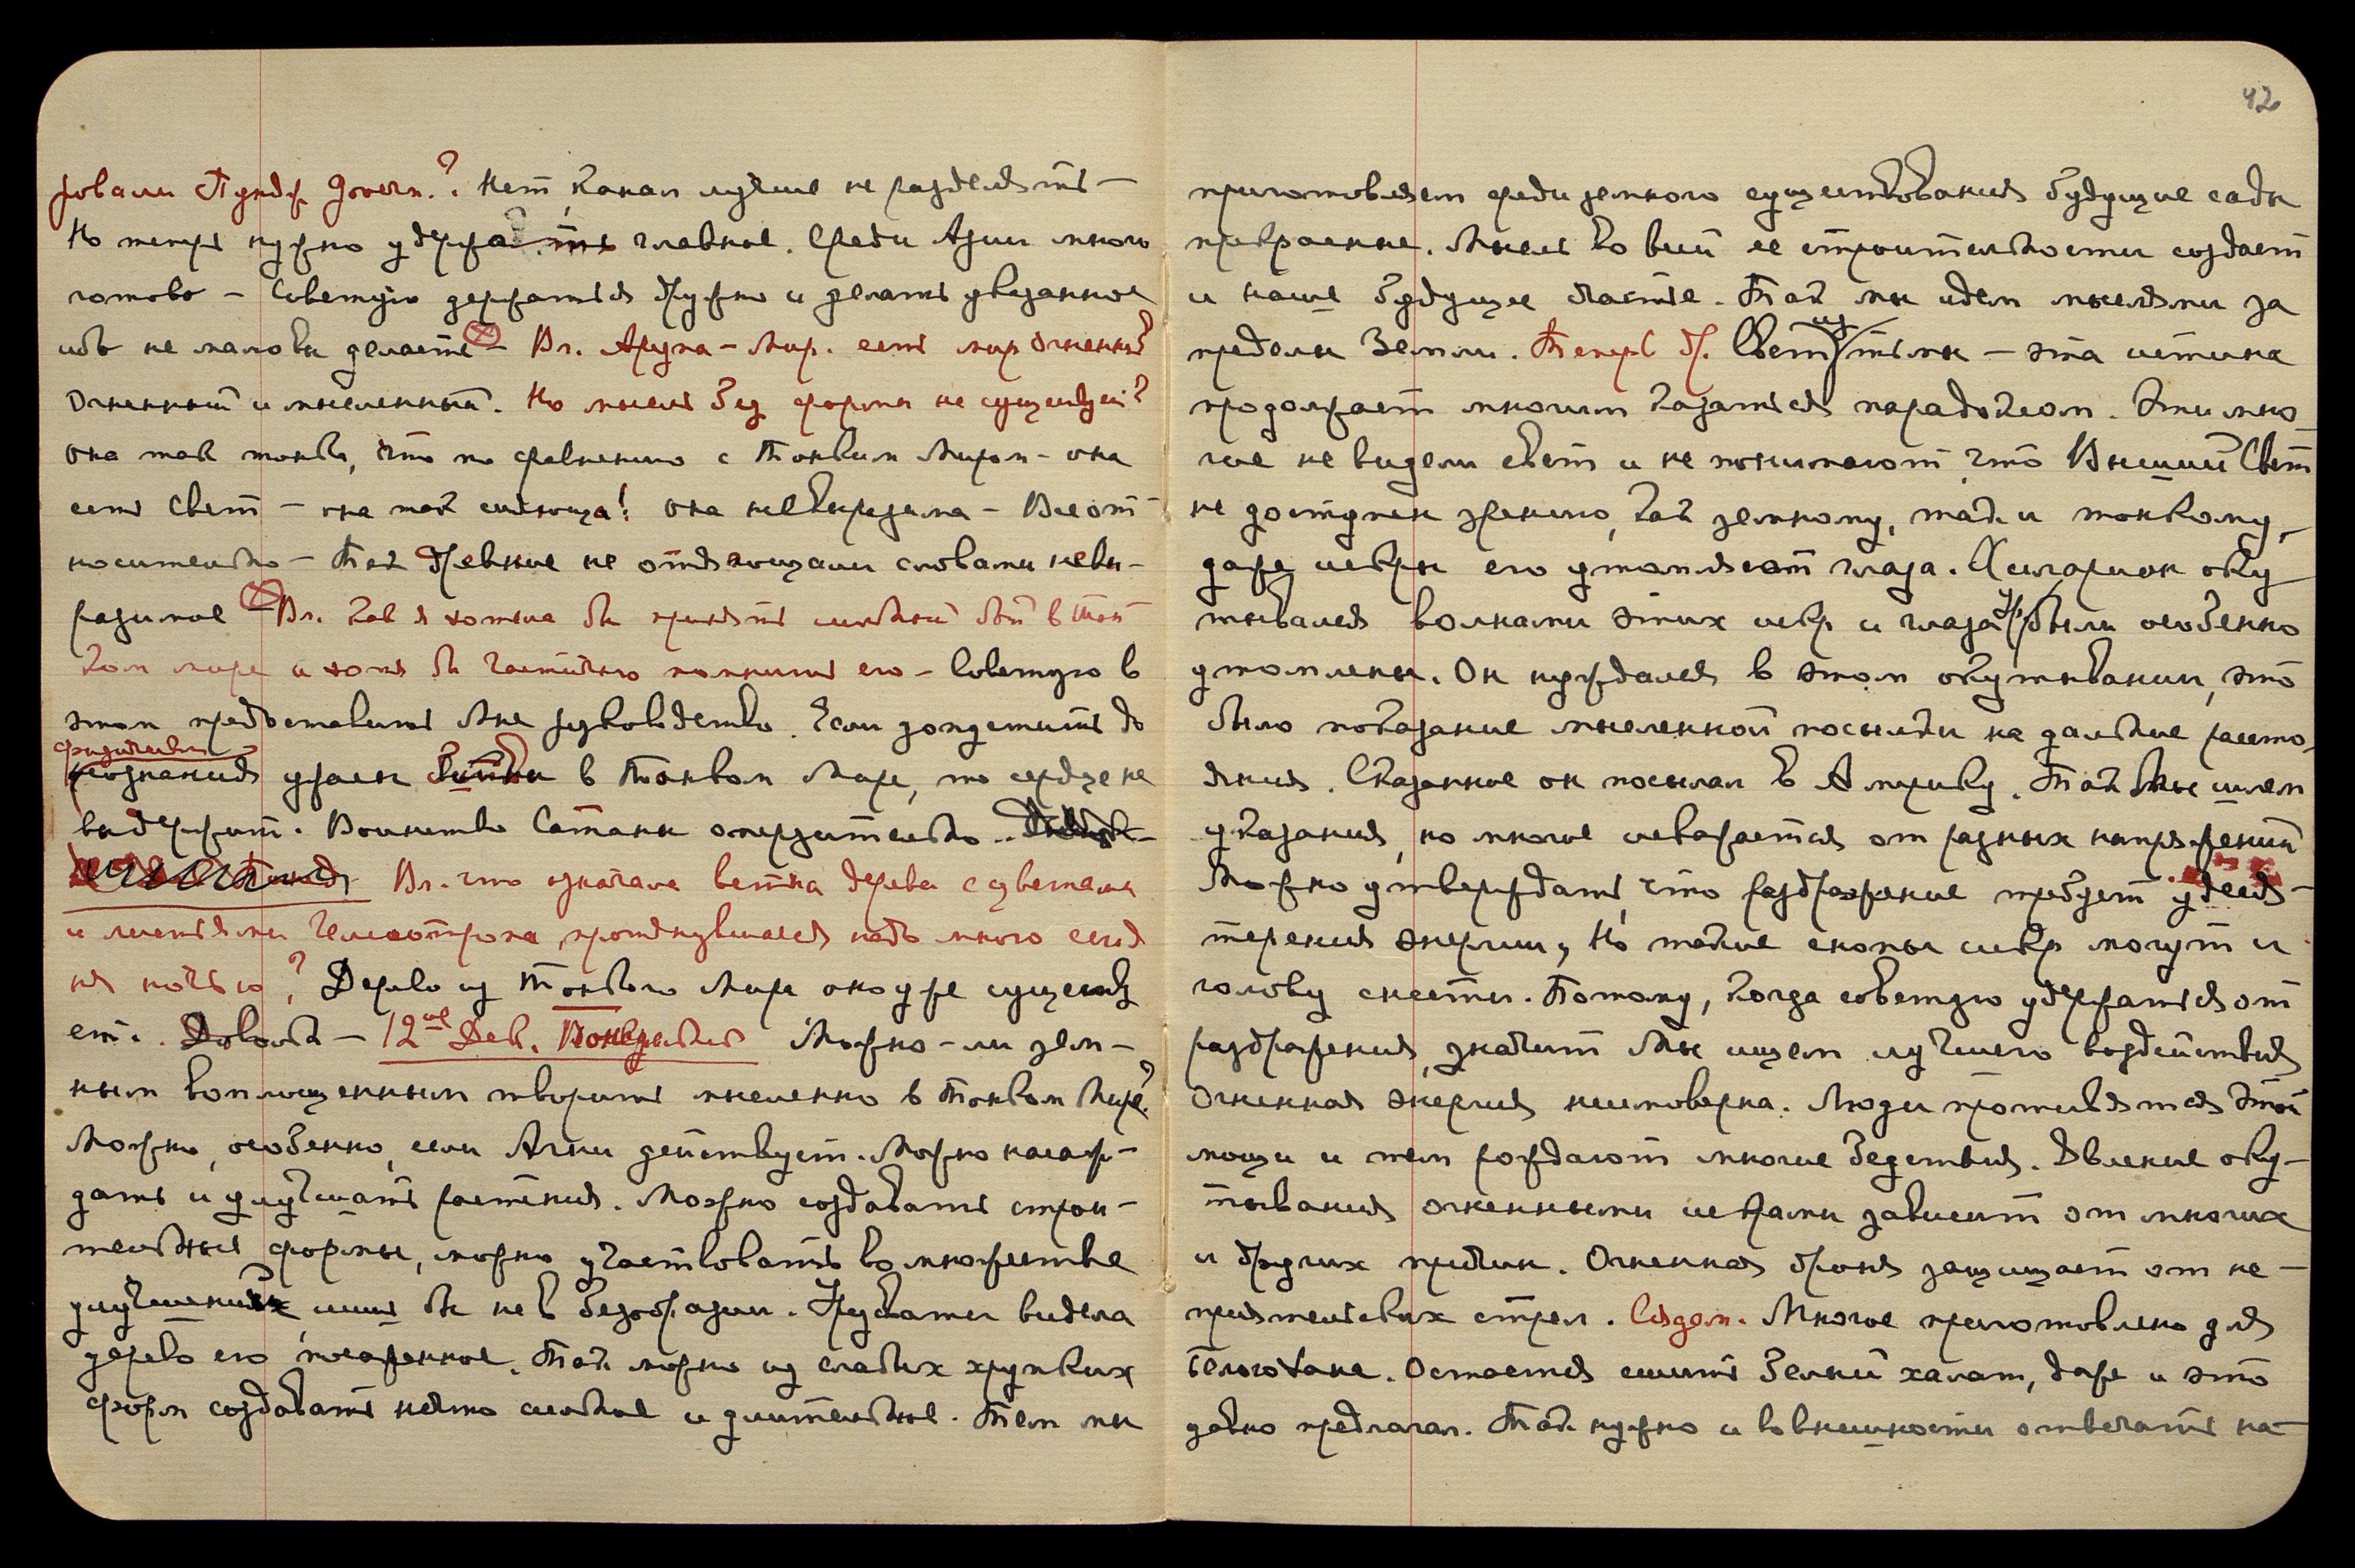 42
ровали Пундж. Govern.? Нет, канал лучше не разделять –
Но теперь нужно удержать главное. Среди Азии много
готово – Советую держаться дружно и делать указанное
ибо не мало вы делаете – Вл. Арупа – Мир. есть мир огненный?
Огненный и мысленный. Но мысль без формы не существует?
Она так тонка, что по сравнению с Тонким Миром – она
есть Свет – она так сияюща! Она невыразима – Все от-
носительно – Так древние не отягощали словами невы-
разимое – Вл. как я хотела бы принять сильный бой в тон
ком мире и хотя бы частично помнить его – Советую в
этом предоставить Мне руководство. Если допустить до
физического
сознания ужасы битвы в Тонком Мире, то сердце не
выдержит. Воинство Сатаны омерзительно.
Вл. что означала ветка дерева с цветами
и листьями Гелиотропа протянувшаяся надо мною сегод
ня ночью? Дерево из Тонкого Мира оно уже существу
ет. Довольно – 12ое Дек. Понедельник Можно-ли зем-
ным воплощенным творить мысленно в Тонком Мире?
Можно, особенно, если Агни действует. Можно насаж-
дать и улучшать растения. Можно создавать строи-
тельные формы, можно участвовать во множестве
улучшений, лишь бы не в безобразии. Урусвати видела
дерево ею посаженное. Так можно из слабых хрупких
форм создавать нечто сильное и длительное. Тем мы
приготовляем среди земного существования будущие сады
прекрасные. Мысль во всей ее строительности создает
и наше будущее счастье. Так мы идем мыслями за
пределы Земли. Теперь др. Свет из тьмы – эта истина
продолжает многим казаться парадоксом. Эти мно-
гие не видели свет и не понимают, что Высший Свет
не доступен зрению, как земному, так и тонкому,
даже искры его утомляют глаза. Хиларион оку
тывался волнами этих искр и глаза Ур. были особенно
утомлены. Он нуждался в этом окутывании, это
было показание мысленной посылки на дальние рассто-
яния. Сказанное он посылал в Америку. Так Мы шлем
указания, но многое искажается от разных напряжений
Можно утверждать, что раздражение требует удеся-
терения энергии, Но такие снопы искр могут и
голову снести. Потому, когда советую удержаться от
раздражения, значит Мы ищем лучшего воздействия
Огненная энергия неимоверна. Люди противятся этой
мощи и тем рождают многие бедствия. Явление оку-
тывания огненными искрами зависит от многих
и других причин. Огненная броня защищает от не-
приятельских стрел. Сядем. Многое приготовлено для
Остается сшить белый халат, даже и это
давно предлагал. Так нужно и во внешности отвечать на-